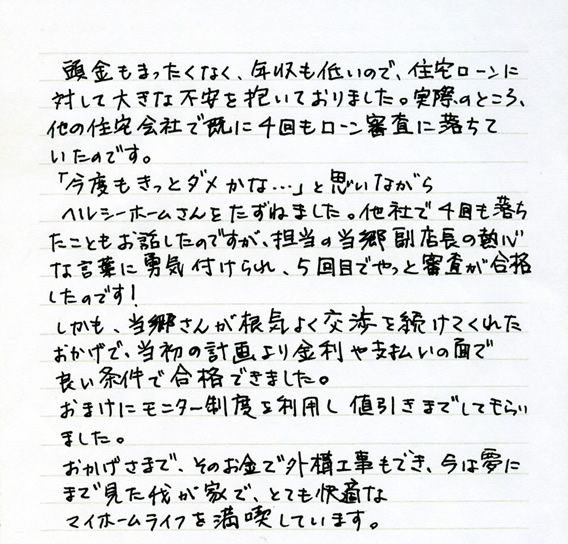 頭金もまったくなく、年収も低いので、住宅ローンに
対して大きな不安を抱いておりました。実際のところ、
他の住宅会社で既に4回もローン審査に落ちて
いたのです。
「今度もきっとダメかな…」と思いながら
ヘルシーホームさんをたずねました。他社で4回も落ち
たこともお話したのですが、担当の当郷副店長の熱心
な言葉に勇気付けられ、5回目でやっと審査が合格
したのです!
しかも、当郷さんが根気よく交渉を続けてくれた
おかげで、当初の計画より金利や支払いの面で
良い条件で合格できました。
おまけにモニター制度を利用し値引きまでしてもらい
ました。
おかげさまで、そのお金で外構工事もでき、今は夢に
まで見た我が家で、とても快適な
マイホームライフを満喫しています。